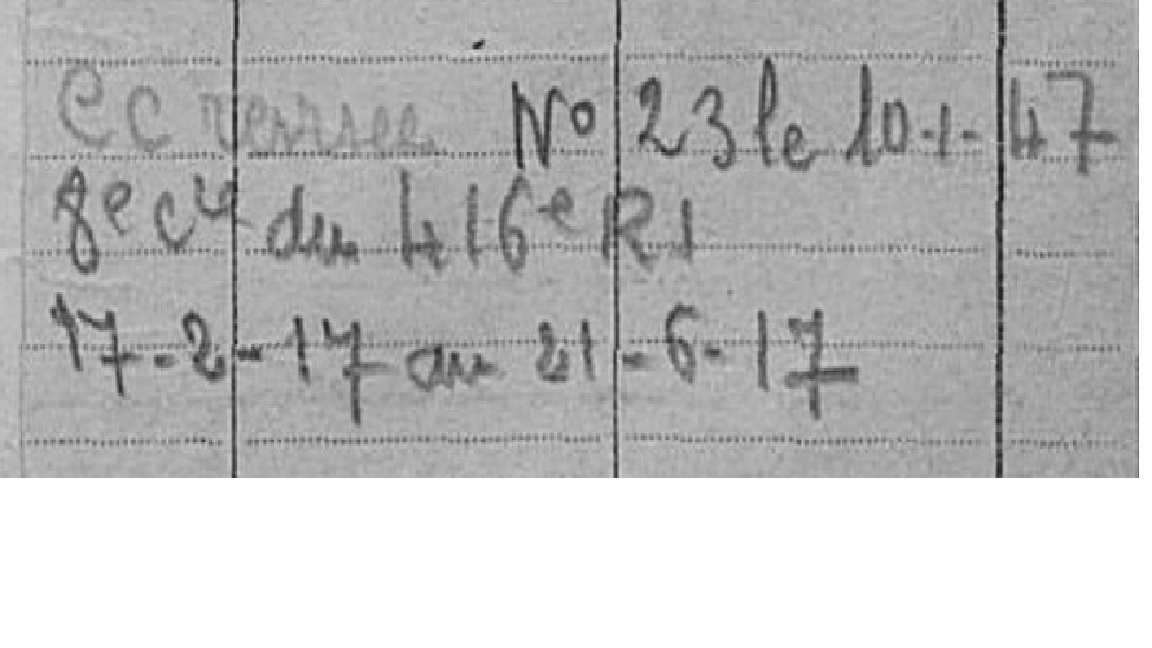 CC remise N° 23 le 10-1-47
8e Cie du 416e RI
17-2-17 au 21-6-17